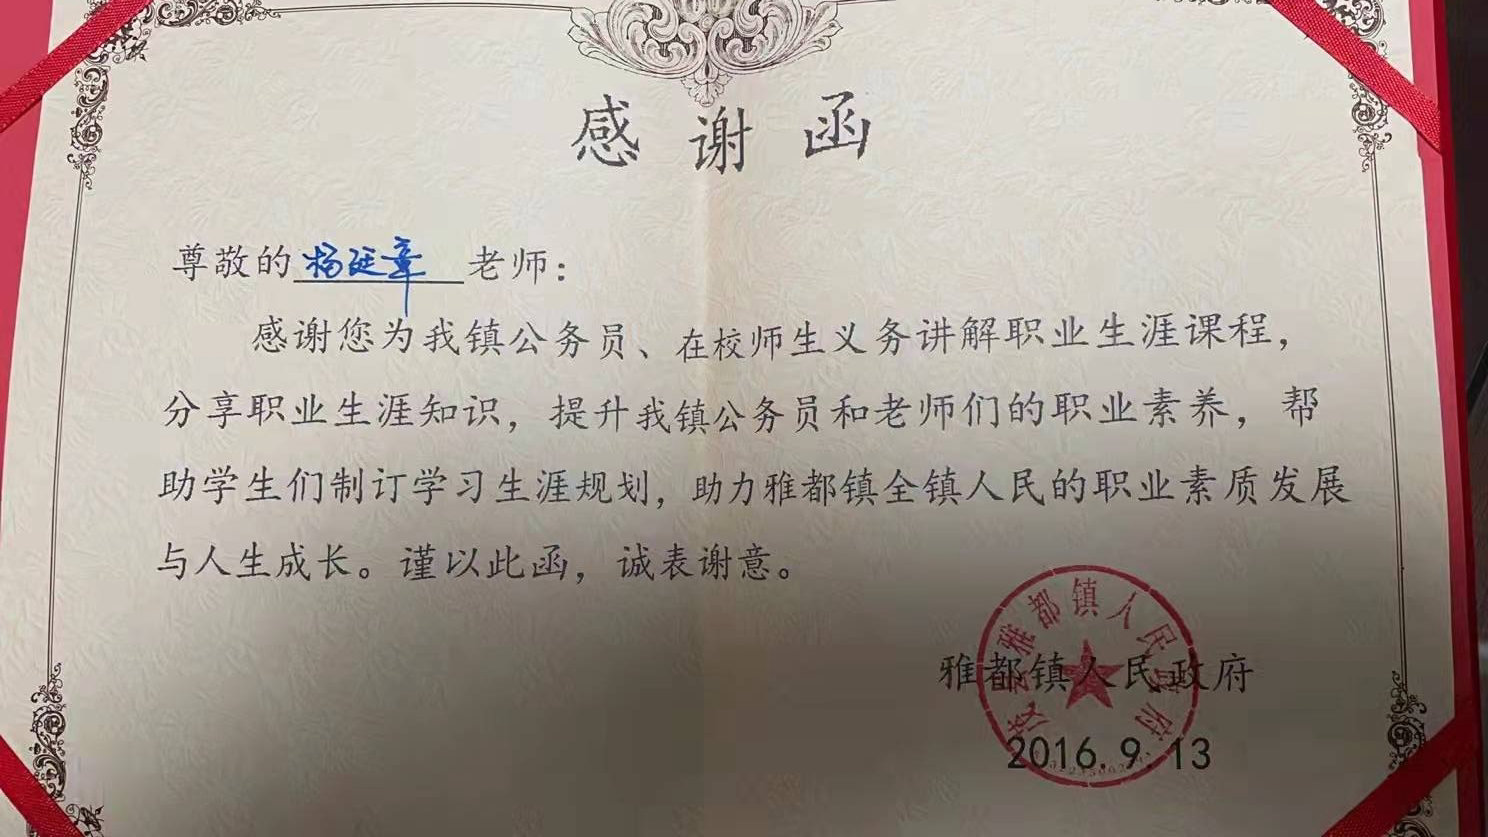 感谢函
尊敬的杨廷章老师：
感谢您为我镇公务员、在校师生义务讲解职业生涯课程，
分享职业生涯知识，提升我镇公务员和老师们的职业素养，帮
助学生们制订学习生涯规划，助力雅都镇全镇人民的职业素质发展
与人生成长。谨以此函，诚表谢意。
雅都镇人民政府
2016.9.13
雅都镇人民政府